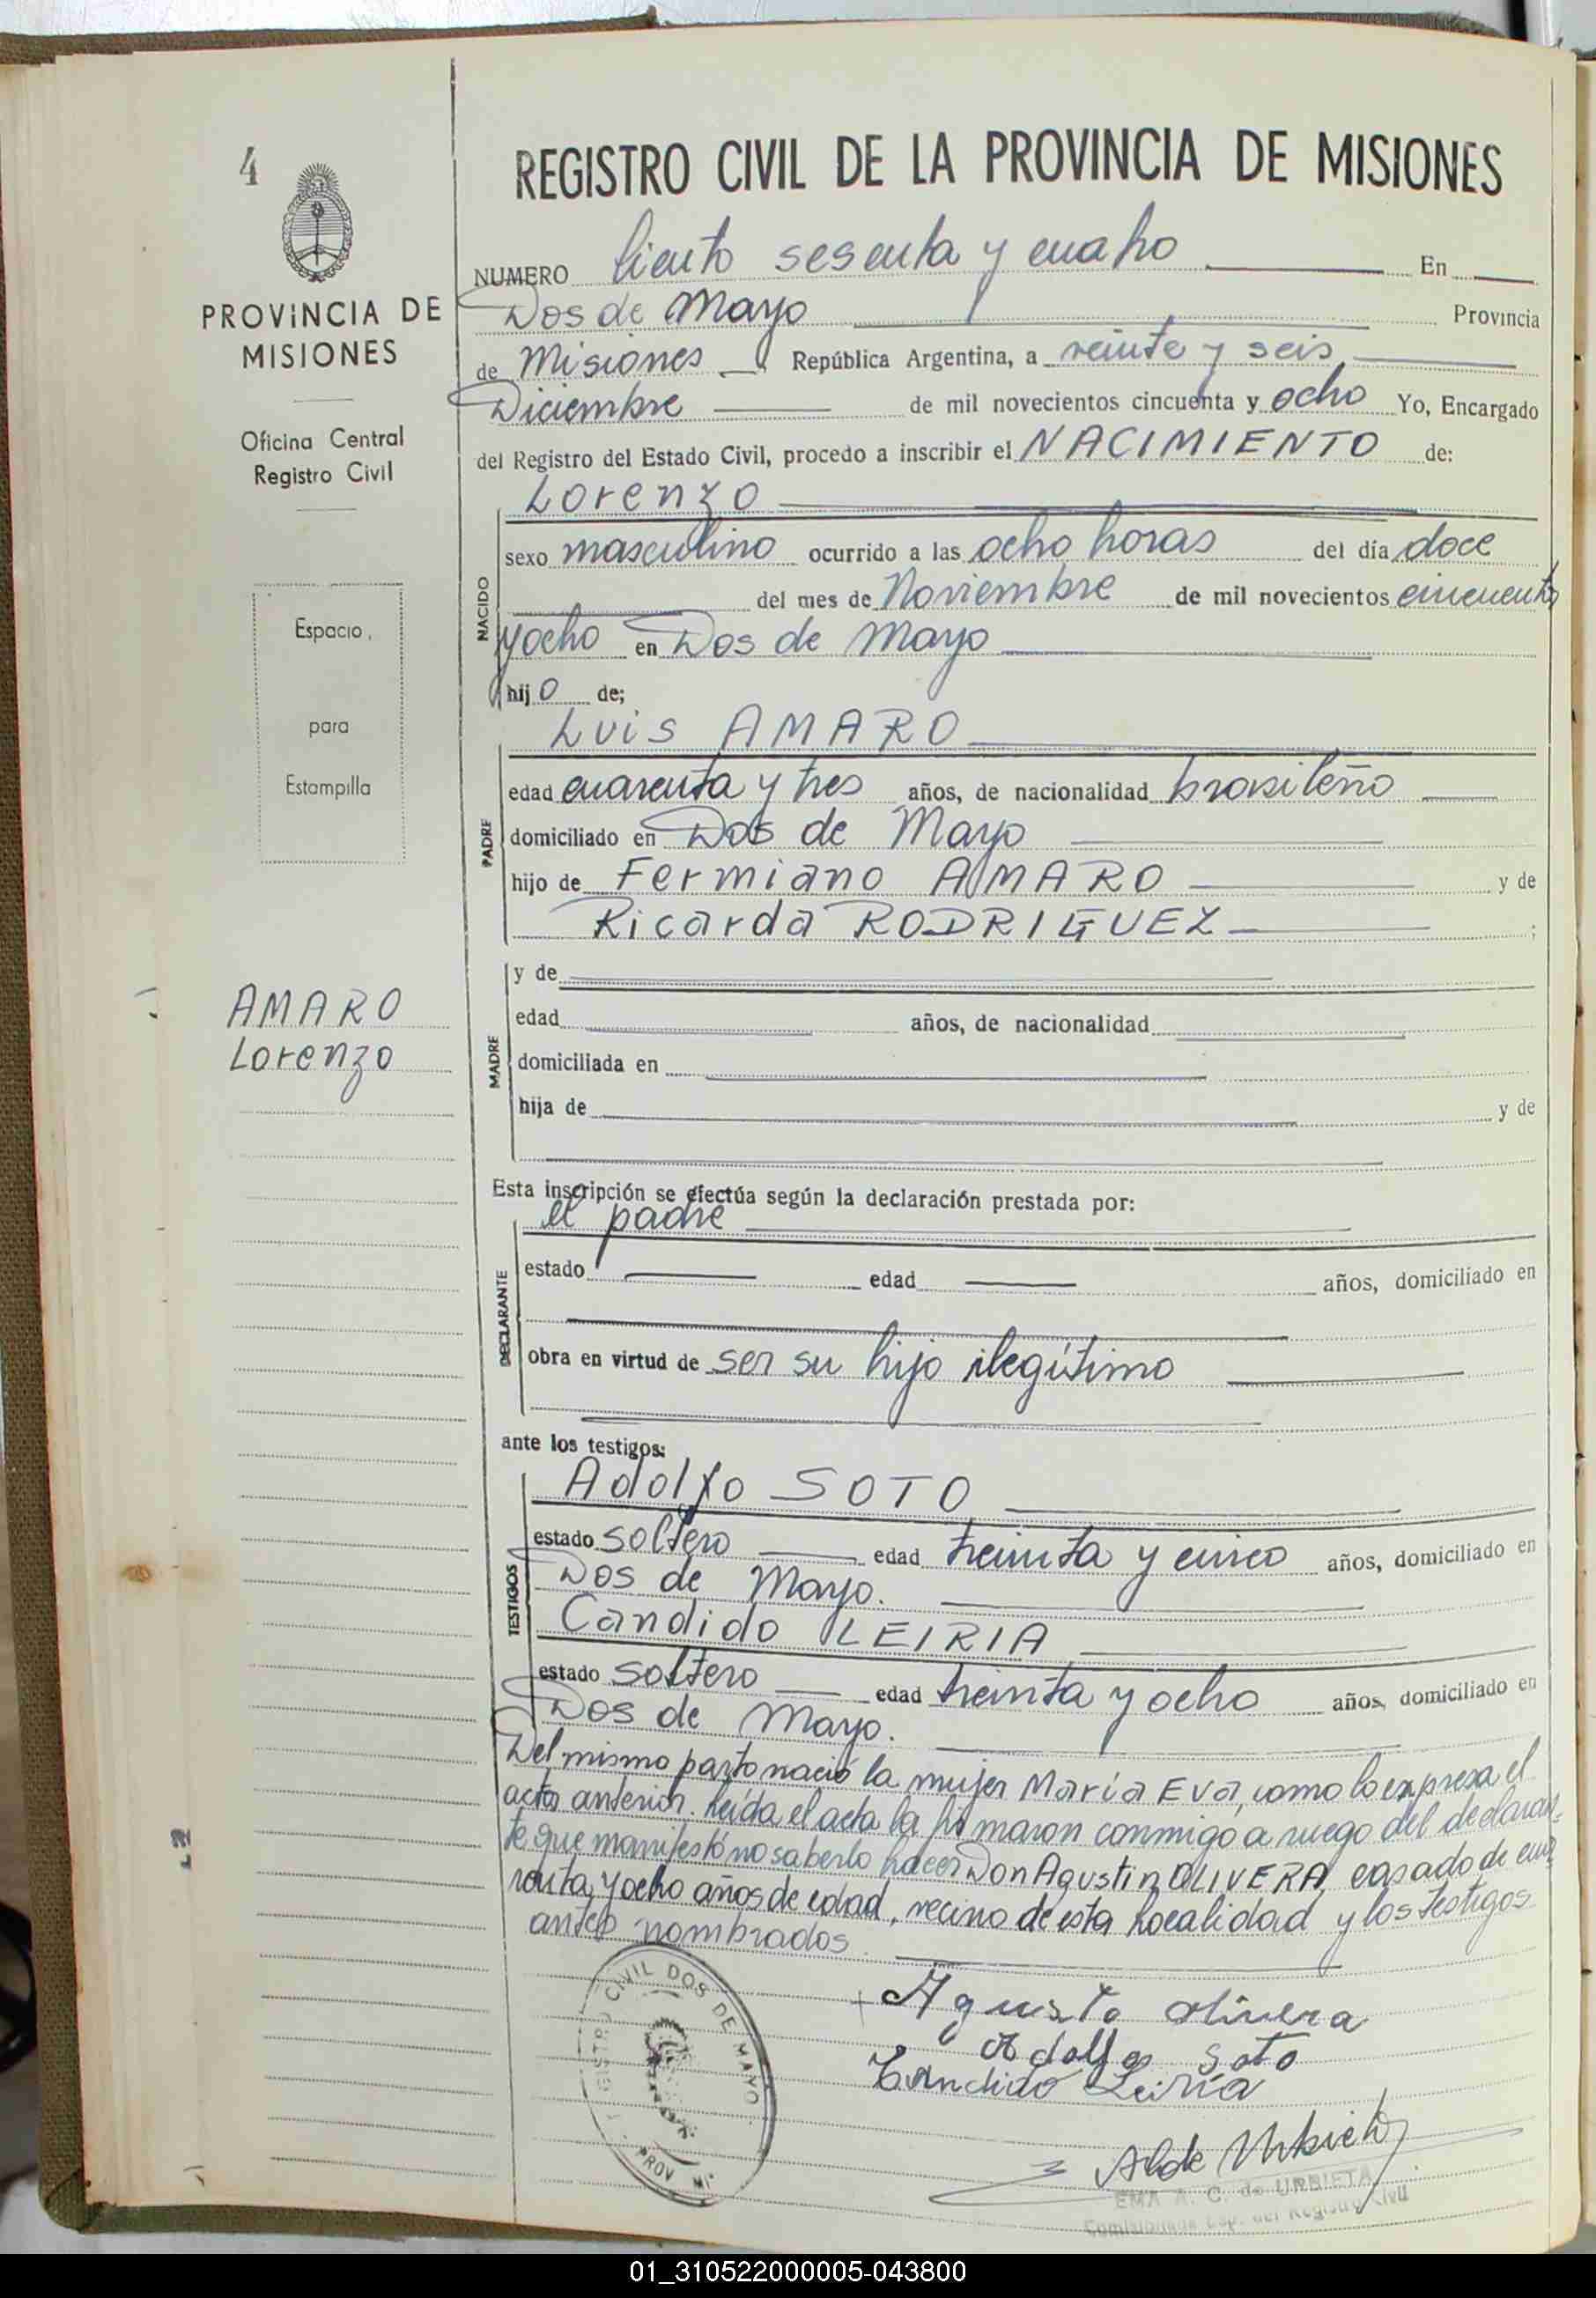 4
PROVINCIA DE
MISIONES
Oficina Central
Registro Civil
Espacio
para
Estampilla
AMARO
Lorenzo
REGISTRO CIVIL DE LA PROVINCIA DE MISIONES
NUMERO Ciento sesenta y cuatro En
Dos de Mayo Provincia
de Misiones República Argentina, a veinte y seis
Diciembre de mil novecientos cincuenta y ocho Yo, Encargado
del Registro del Estado Civil, procedo a inscribir el NACIMIENTO de:
Lorenzo
NACIDO
sexo masculino ocurrido a las ocho horas del día doce
del mes de Noviembre de mil novecientos cincuenta
y ocho en Dos de Mayo
hijo de;
Luis AMARO
PADRE
edad cuarenta y tres años, de nacionalidad brasileño
domiciliado en Dos de Mayo
hijo de Fermiano AMARO y de
Ricarda RODRIGUEZ ;
MADRE
y de
edad años, de nacionalidad
domiciliada en
hija de y de
Esta inscripción se efectúa según la declaración prestada por:
el padre
DECLARANTE
estado edad años, domiciliado en
obra en virtud de ser su hijo ilegítimo
ante los testigos:
TESTIGOS
Adolfo SOTO
estado soltero edad treinta y cinco años, domiciliado en
Dos de Mayo.
Candido LEIRIA
estado soltero edad treinta y ocho años, domiciliado en
Dos de Mayo.
Del mismo parto nació la mujer María Eva, como lo expresa el
acta anterior. Leída el acta la firmaron conmigo a ruego del declaran-
te que manifestó no saberlo hacer Don Agustin OLIVERA, casado de cua-
renta y ocho años de edad, vecino de esta Localidad y los testigos
antes nombrados.
CIVIL DOS DE MAYO
PROV MI
Agusto Olivera
Adolfo Soto
Candido Leiria
EMA A. C. de URBIETA
Comisionada Esp. del Registro Civil
01_310522000005-043800